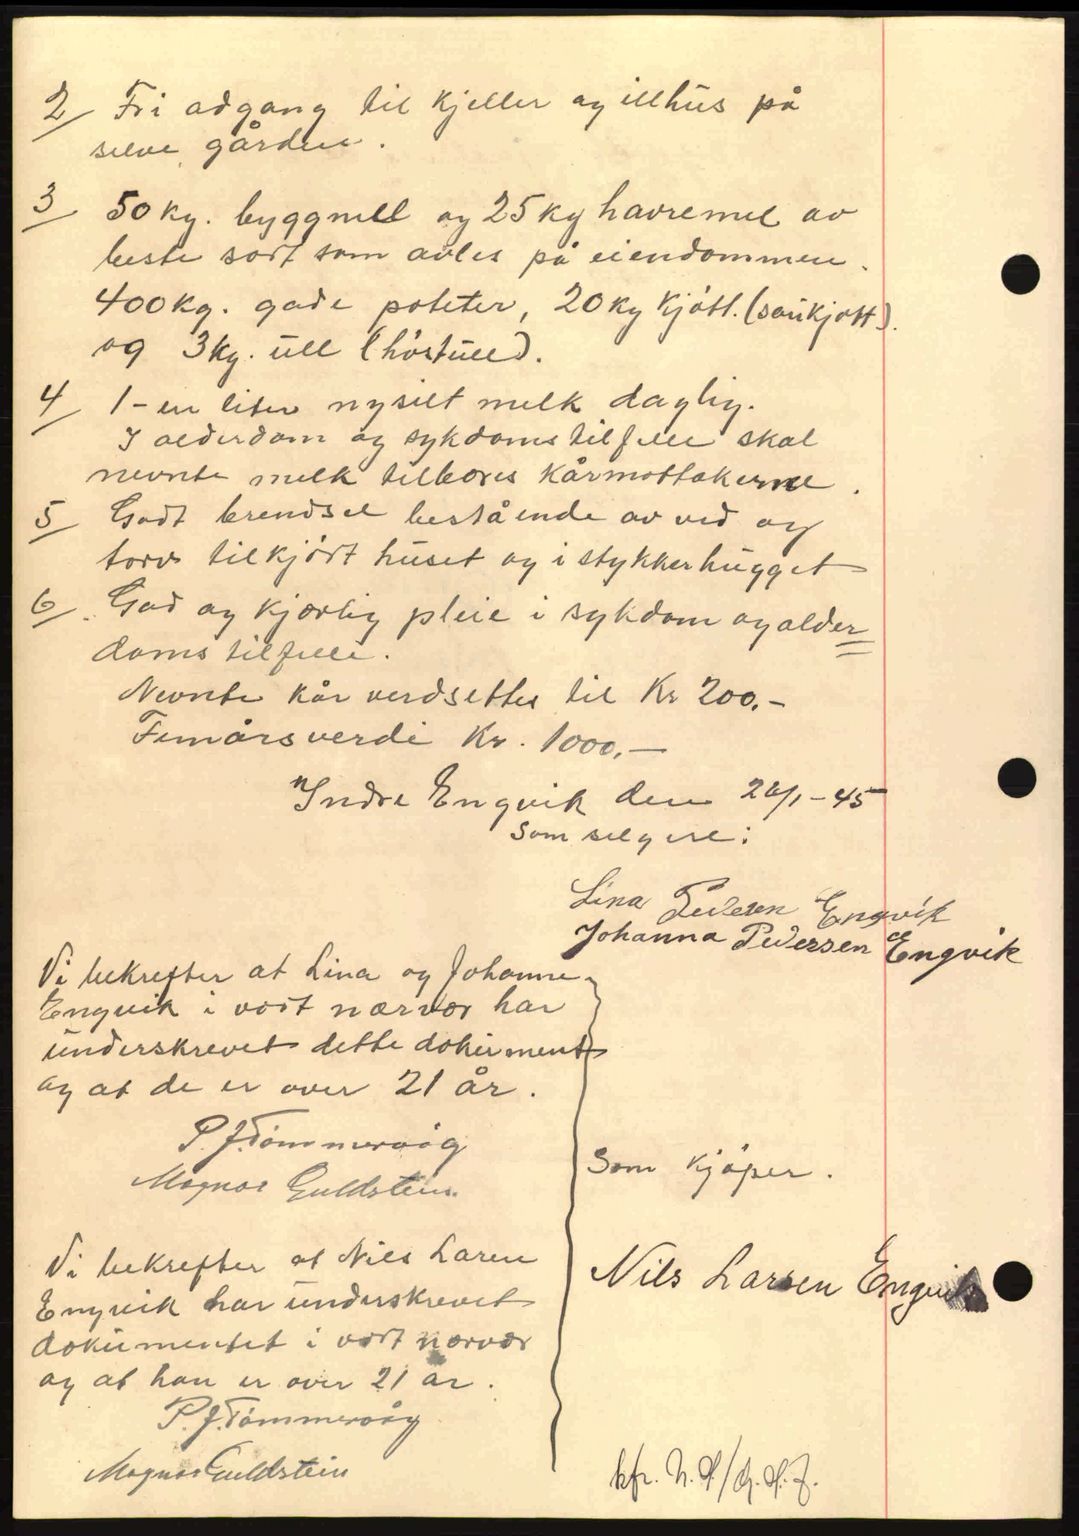 2/ Fri adgang til kjeller og illhus på
selve gården.
3/ 50 kg. byggmel og 25 kg havremel av
beste sort som avles på eiendommen.
400 kg. gode poteter, 20 kg kjøtt. (saukjøtt).
og 3 kg. ull (høstull).
4/ 1-en liter nysilt melk daglig.
I alderdom og sykdomstilfelle skal
nevnte melk tilbæres kårmottakerne.
5/ Godt brendsel bestående av ved og
torv tilkjørt huset og i stykker hugget
6/ God og kjærlig pleie i sykdom og alder
domstilfelle.
Nevnte kår verdsettes til Kr 200.-
Femårsverdi Kr. 1000.-
Indre Engvik den 26/1-45
Som selgere:
Lina Pedersen Engvik
Johanna Pedersen Engvik
Vi bekrefter at Lina og Johanne
Engvik i vort nærvær har
underskrevet dette dokument
og at de er over 21 år.
P. J. Tømmervåg
Magnar Guldstein
Som kjøper.
Nils Larsen Engvik
Vi bekrefter at Nils Larsen
Engvik har underskrevet
dokumentet i vort nærvær
og at han er over 21 år.
P. J. Tømmervåg
Magnar Guldstein
kfr.